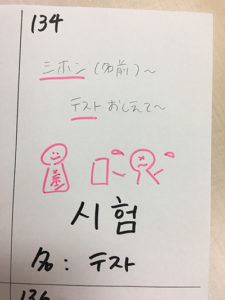 134
シホン(名前)～
テスト おしえて～
시험
名: テスト
136